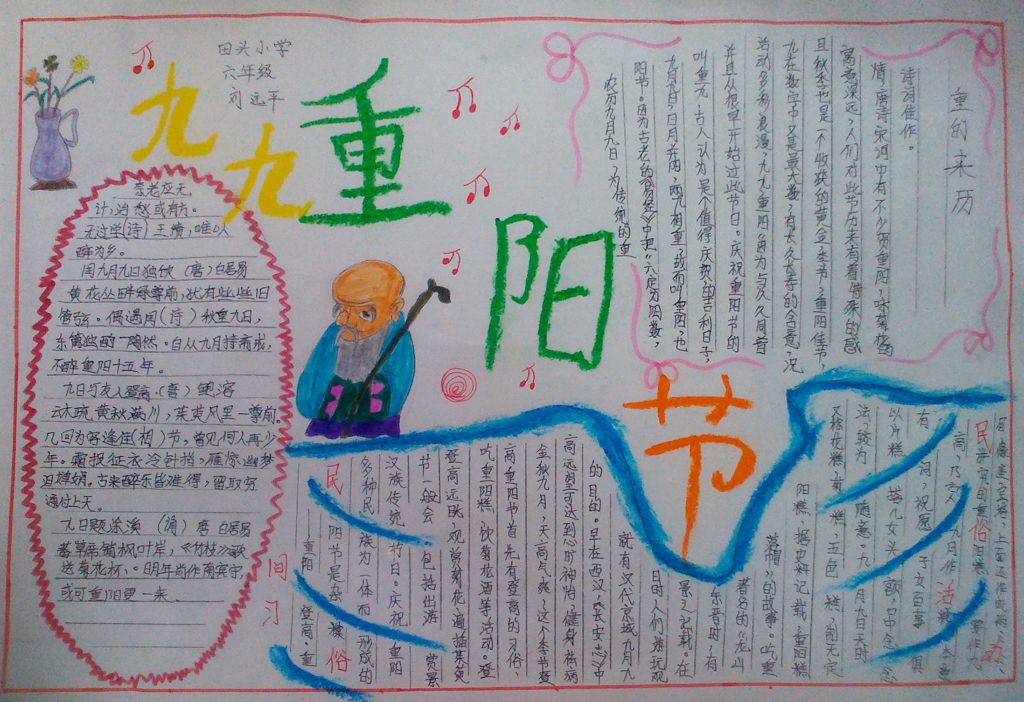 田头小学
六年级
刘远平
九九重阳节
重的来历
农历九月九日,为传统的重
阳节。因为古老的《易经》中把“六”定为阴数,
九月九日,日月并阳,两九相重,故而叫重阳,也
叫重九,古人认为是个值得庆贺的吉利日子,
并且从很早开始过此节日。庆祝重阳节的
活动多彩浪漫,九九重阳,因为与久久同音
九在数字中又是最大数,有长久长寿的含意,况
且秋季也是一个收获的黄金季节,重阳佳节,
寓意深远,人们对此节历来有着特殊的感
情,唐诗宋词中有不少贺重阳,咏菊花的
诗词佳作。
无过学(诗)王绩,唯以
醉为乡。
闰九月九日独饮(唐)白居易
黄花丛畔绿尊前,犹有些些旧
管弦。偶遇闰(诗)秋重九日,
东篱独酌一陶然。自从九月持斋戒,
不醉重阳十五年。
九日与友人登高(唐)
云木疏黄秋满川,茱萸风里一尊前。
几回为客逢佳节,曾见何人再少
年。霜报征衣冷针指,雁惊幽梦
古来醉乐皆难得,留取穷
通付上天。
九日题涂溪 唐 白居易
蕃草席铺枫叶岸,《竹枝》歌
送菊花杯。明年尚作南宾守,
或可重阳更一来
民间习俗
重阳 登高。重
阳节是杂糅
多种民族为一体而形成的
汉族传统节日。庆祝重阳
节一般会包括出游赏景
登高远眺,观赏菊花,遍插茱萸
吃重阳糕,饮菊花酒等活动。登
高重阳节首先有登高的习俗,
金秋九月,天高气爽,这个季节登
高远望可达到心旷神怡,健身祛病
的目的。早在西汉,《长安志》中
就有汉代京城九月九
日时人们游玩观
景之记载。在
东晋时,有
著名的“龙山
落帽”的故事。吃重
阳糕 据史料记载,重阳糕
又称花糕,菊糕,五色糕,制无定
法,较为随意。九月九日天明时
以片糕搭儿女头额,口中念念
有词,祝愿子女百事俱
高,乃古人九月作糕的本意
民俗活动